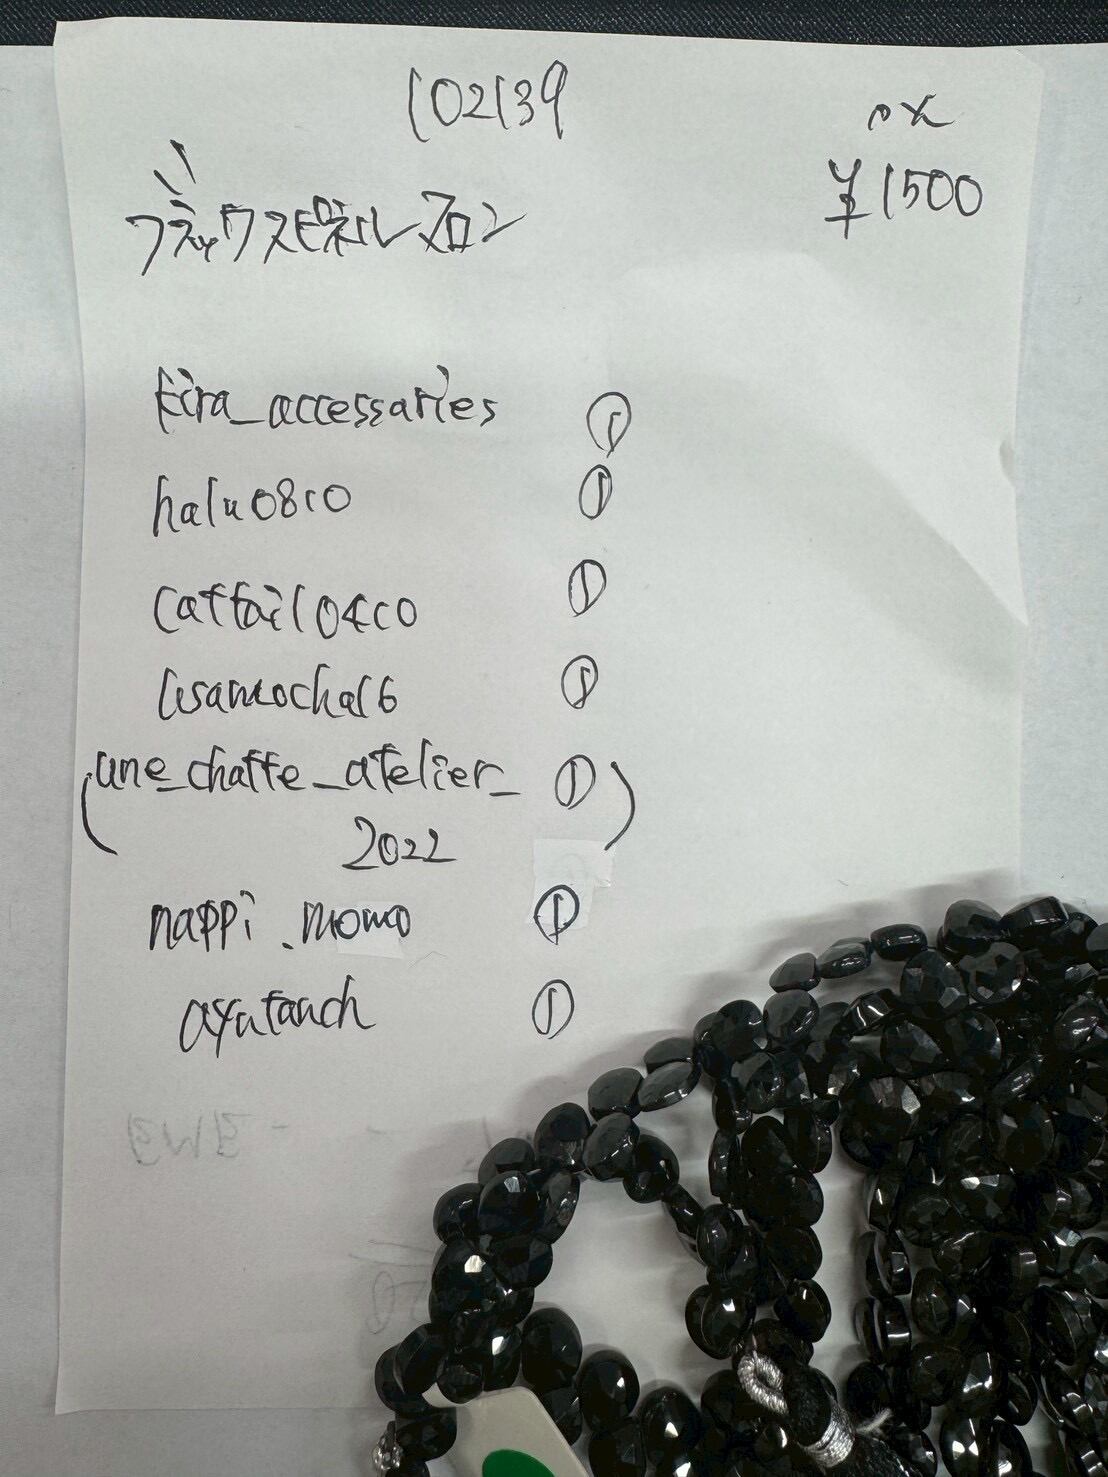 102139
¥1500
ブラックスピネルマロン
kira_accessaries ①
halu0810 ①
cattail0410 ①
lisamocha16 ①
(une_chatte_atelier_ ①)
2022
nappi.momo ①
ayutanch ①